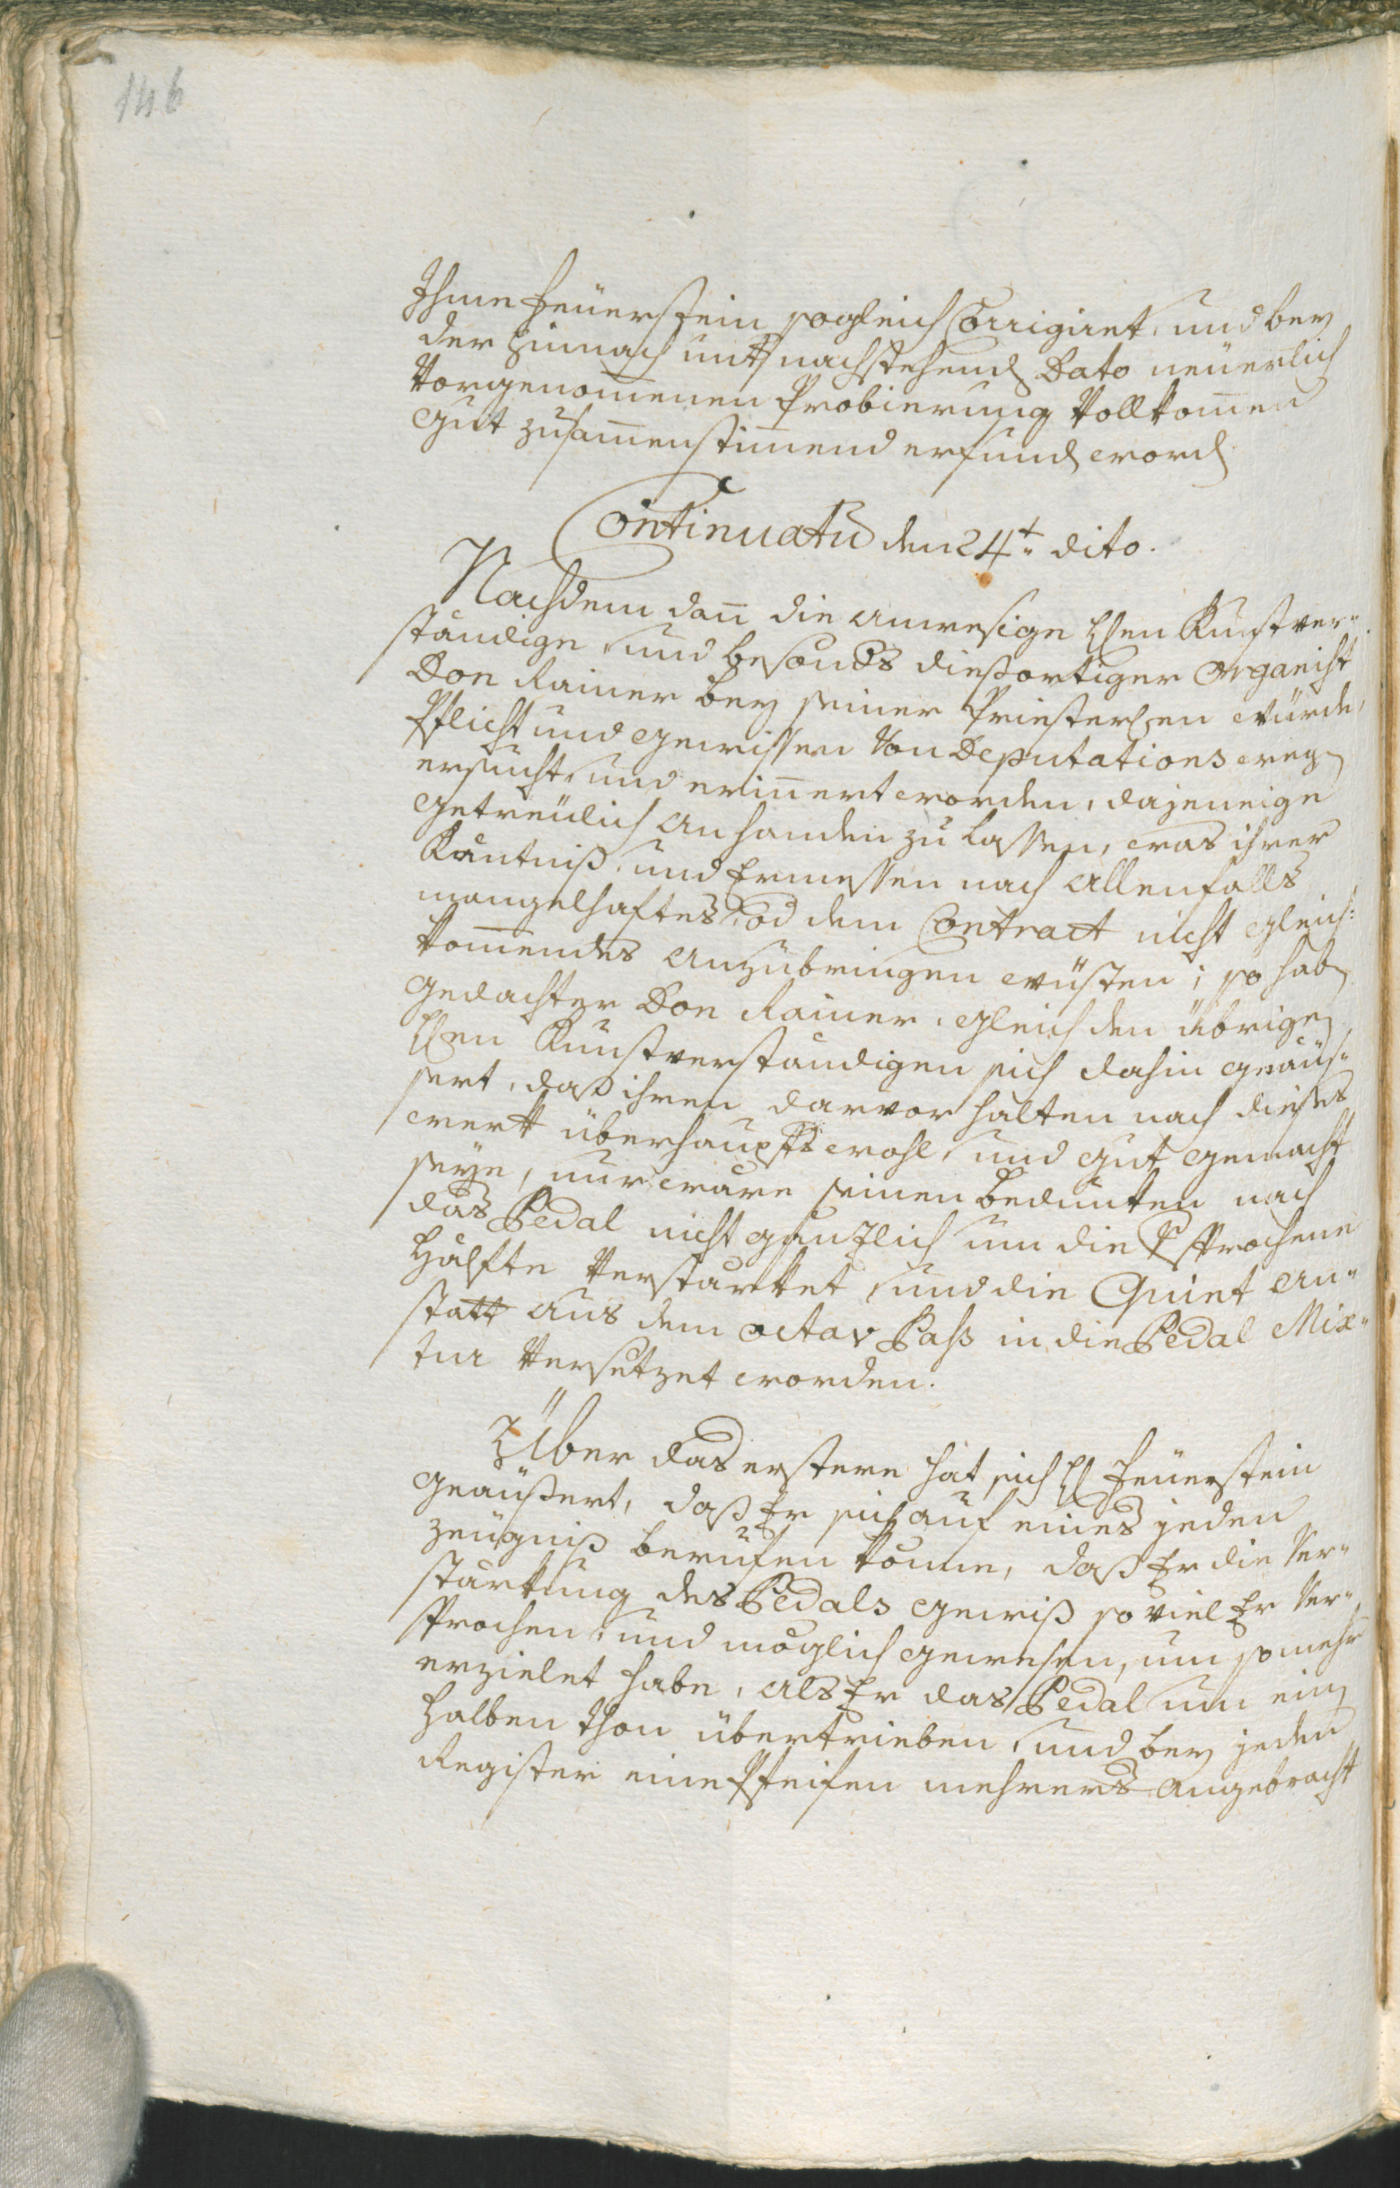 146
Ihme Feüerstein sogleich Corrigiret, und bey
der hinnach unter nachstehend Dato neüerlich
Vorgenom̅enen Probierung Vollkom̅en
gut zusam̅enstimmend erfund word
Continuatū den 24t. dito.
Nachdem dan̅ die anwesige Hen Kunstver¬
ständige, und besonders diesortiger Organist
Don Rainer bey seiner Priesterhen würde,
Pflicht und Gewissen Von Deputations weg
ersucht, und erin̅ert worden, dajenige
getreülich anhanden zu lassen, was ihrer
Käntniß, und Ermessen nach Allenfalls
mangelhaftes, od dem Contract nicht gleich¬
kom̅endes anzubringen wüsten; so hab
gedachter Don Rainer, gleich den übrige
Hen Kunstverständigen sich dahin geäus¬
sert, daß ihren darvorhalten nach dieses
werk überhaupts wohl, und gut gemacht
seye, nur ware seinen bedunken nach
das Pedal nicht gänzlich um die Vsprochene
Hälfte Verstärket, und die Quint an¬
statt aus dem octav Pass in die Pedal Mix¬
tur Versetzet worden.
Über das erstere hat sich H Feüerstein
geäußert, daß Er sich auf eines jeden
zeügniß berufen könne, daß Er die Ver¬
stärkung des Pedals gewiß so viel Er Ver¬
sprochen, und möglich gewesen, um so mehr
erzielet habe, als Er das Pedal um ein
halben thon übertrieben, und bey jeden
Register eine Pfeifen mehrers angebracht